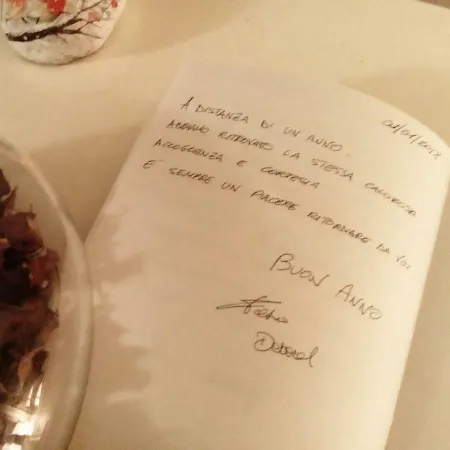 01/01/2018
A DISTANZA DI UN ANNO
ABBIAMO RITROVATO LA STESSA CALOROSA
ACCOGLIENZA E CORTESIA
E' SEMPRE UN PIACERE RITORNARE DA VOI
BUON ANNO